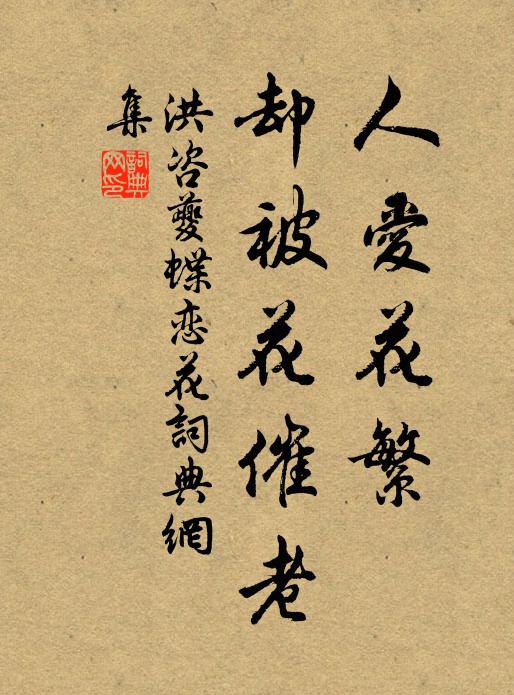 人愛花繁
却被花催老
洪咨夔蝶恋花詞典網
集
詞典
网印